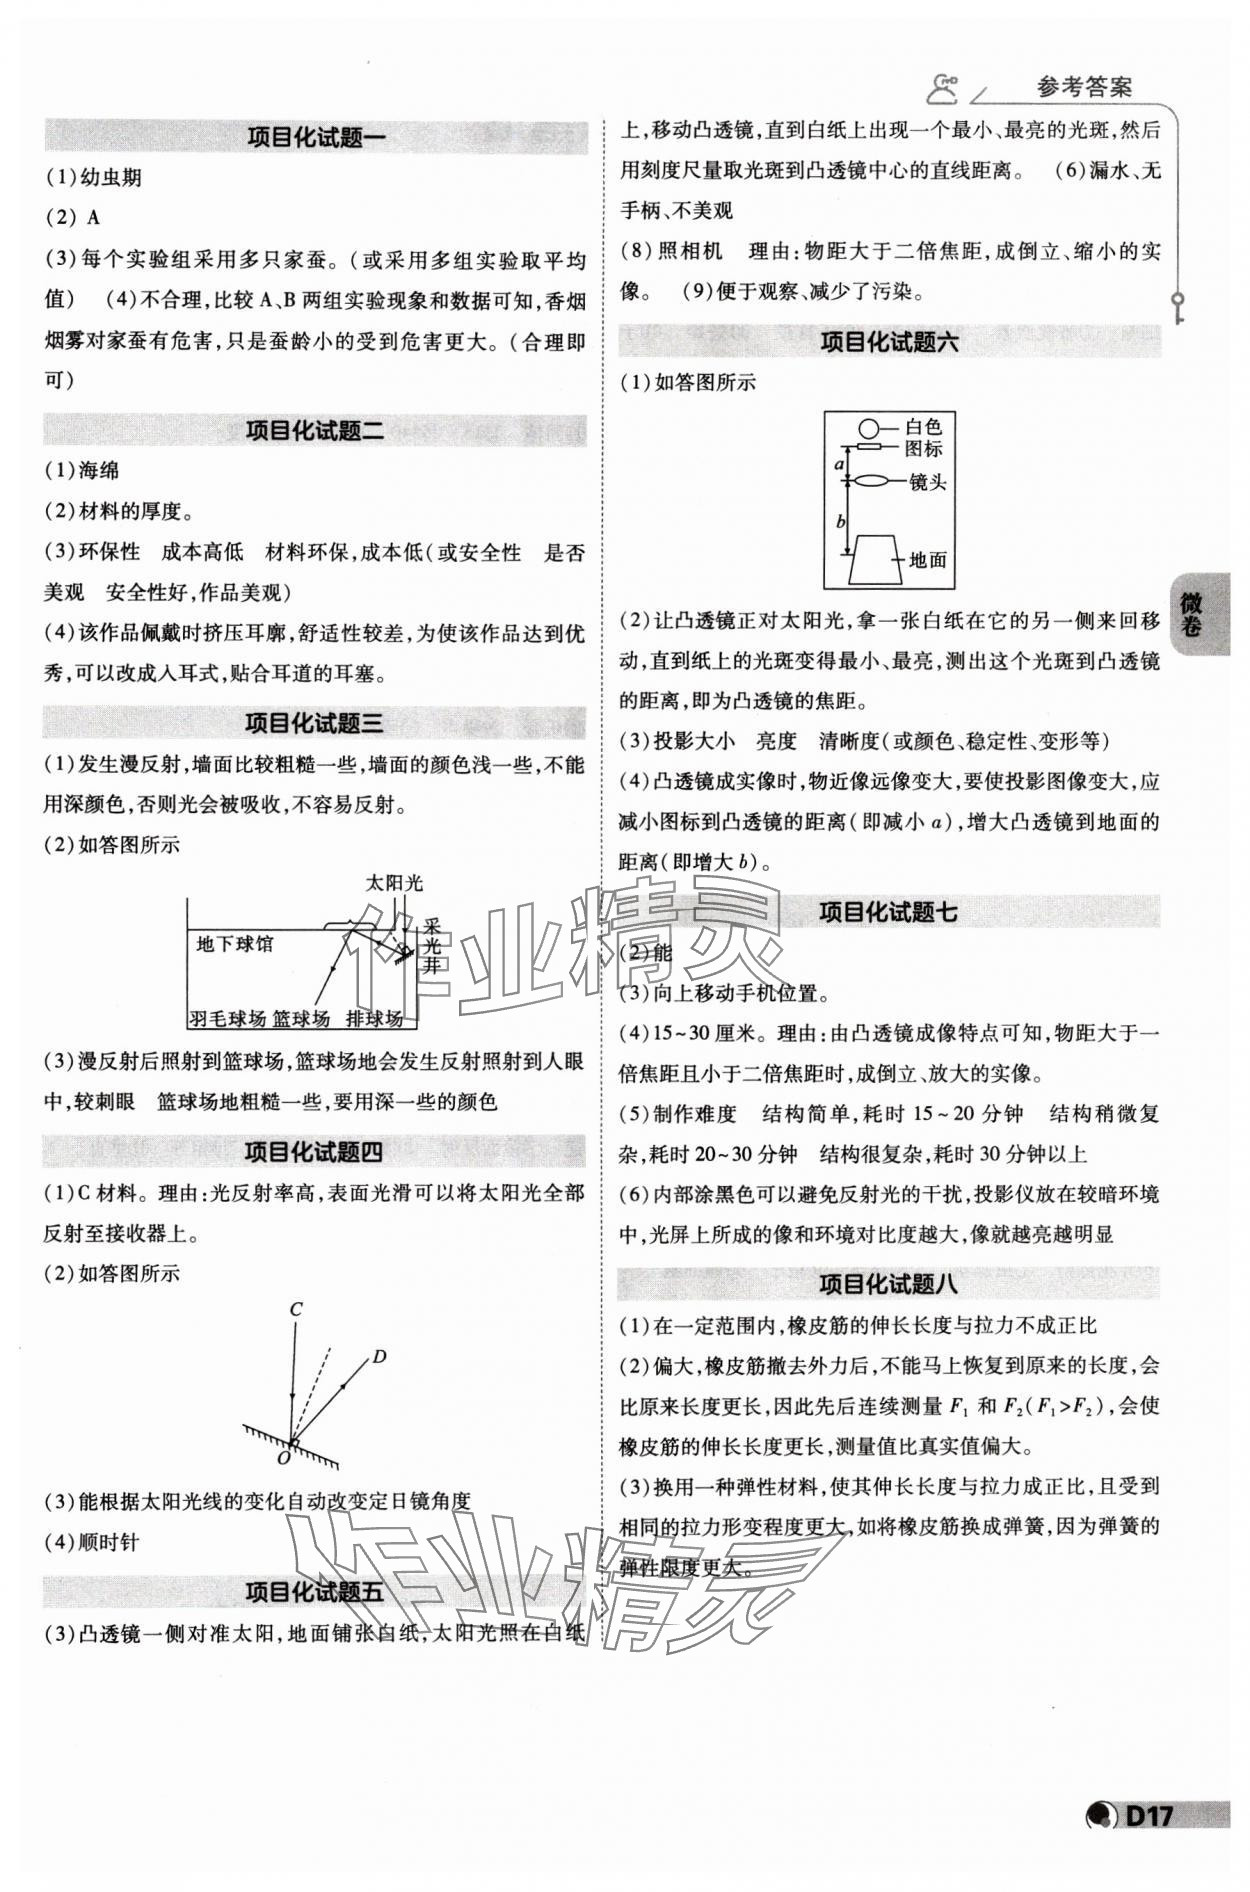 参考答案
项目化试题一
(1)幼虫期
(2) A
(3)每个实验组采用多只家蚕。(或采用多组实验取平均
值) (4)不合理,比较 A、B 两组实验现象和数据可知,香烟
烟雾对家蚕有危害,只是蚕龄小的受到危害更大。(合理即
可)
项目化试题二
(1)海绵
(2)材料的厚度。
(3)环保性 成本高低 材料环保,成本低(或安全性 是否
美观 安全性好,作品美观)
(4)该作品佩戴时挤压耳廓,舒适性较差,为使该作品达到优
秀,可以改成入耳式,贴合耳道的耳塞。
项目化试题三
(1)发生漫反射,墙面比较粗糙一些,墙面的颜色浅一些,不能
用深颜色,否则光会被吸收,不容易反射。
(2)如答图所示
太阳光
采光井
地下球馆
羽毛球场 篮球场 排球场
(3)漫反射后照射到篮球场,篮球场地会发生反射照射到人眼
中,较刺眼 篮球场地粗糙一些,要用深一些的颜色
项目化试题四
(1)C 材料。理由:光反射率高,表面光滑可以将太阳光全部
反射至接收器上。
(2)如答图所示
C
D
O
(3)能根据太阳光线的变化自动改变定日镜角度
(4)顺时针
项目化试题五
(3)凸透镜一侧对准太阳,地面铺张白纸,太阳光照在白纸
上,移动凸透镜,直到白纸上出现一个最小、最亮的光斑,然后
用刻度尺量取光斑到凸透镜中心的直线距离。 (6)漏水、无
手柄、不美观
(8)照相机 理由:物距大于二倍焦距,成倒立、缩小的实
像。 (9)便于观察、减少了污染。
项目化试题六
(1)如答图所示
白色
图标
a
镜头
b
地面
(2)让凸透镜正对太阳光,拿一张白纸在它的另一侧来回移
动,直到纸上的光斑变得最小、最亮,测出这个光斑到凸透镜
的距离,即为凸透镜的焦距。
(3)投影大小 亮度 清晰度(或颜色、稳定性、变形等)
(4)凸透镜成实像时,物近像远像变大,要使投影图像变大,应
减小图标到凸透镜的距离(即减小 a),增大凸透镜到地面的
距离(即增大 b)。
项目化试题七
(2)能
(3)向上移动手机位置。
(4)15~30 厘米。理由:由凸透镜成像特点可知,物距大于一
倍焦距且小于二倍焦距时,成倒立、放大的实像。
(5)制作难度 结构简单,耗时 15~20 分钟 结构稍微复
杂,耗时 20~30 分钟 结构很复杂,耗时 30 分钟以上
(6)内部涂黑色可以避免反射光的干扰,投影仪放在较暗环境
中,光屏上所成的像和环境对比度越大,像就越亮越明显
项目化试题八
(1)在一定范围内,橡皮筋的伸长长度与拉力不成正比
(2)偏大,橡皮筋撤去外力后,不能马上恢复到原来的长度,会
比原来长度更长,因此先后连续测量 F₁ 和 F₂(F₁>F₂),会使
橡皮筋的伸长长度更长,测量值比真实值偏大。
(3)换用一种弹性材料,使其伸长长度与拉力成正比,且受到
相同的拉力形变程度更大,如将橡皮筋换成弹簧,因为弹簧的
弹性限度更大。
微卷
作业精灵
作业精灵
D17